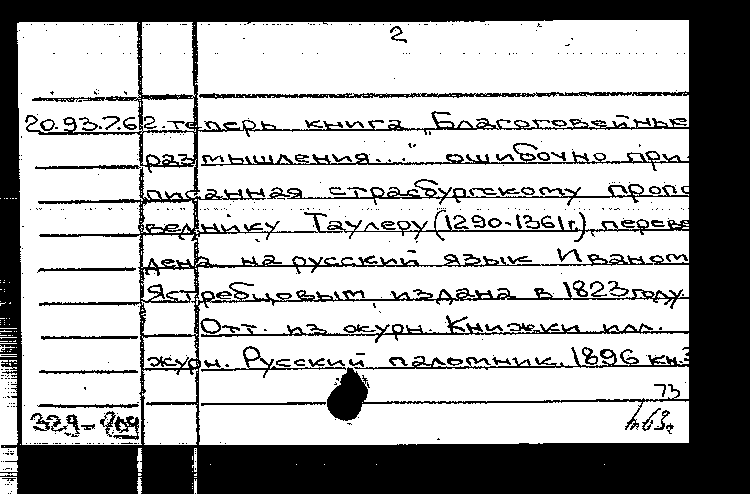 2
20.93.7.62. теперь книга „Благоговейные
размышления..." ошибочно при-
писанная страсбургскому пропо
веднику Таулеру (1290-1361г.), переве
дена на русский язык Иваном
Ястребцовым, издана в 1823 году
Отт. из журн. Книжки илл.
журн. Русский паломник, 1896 кн.3
73
329-